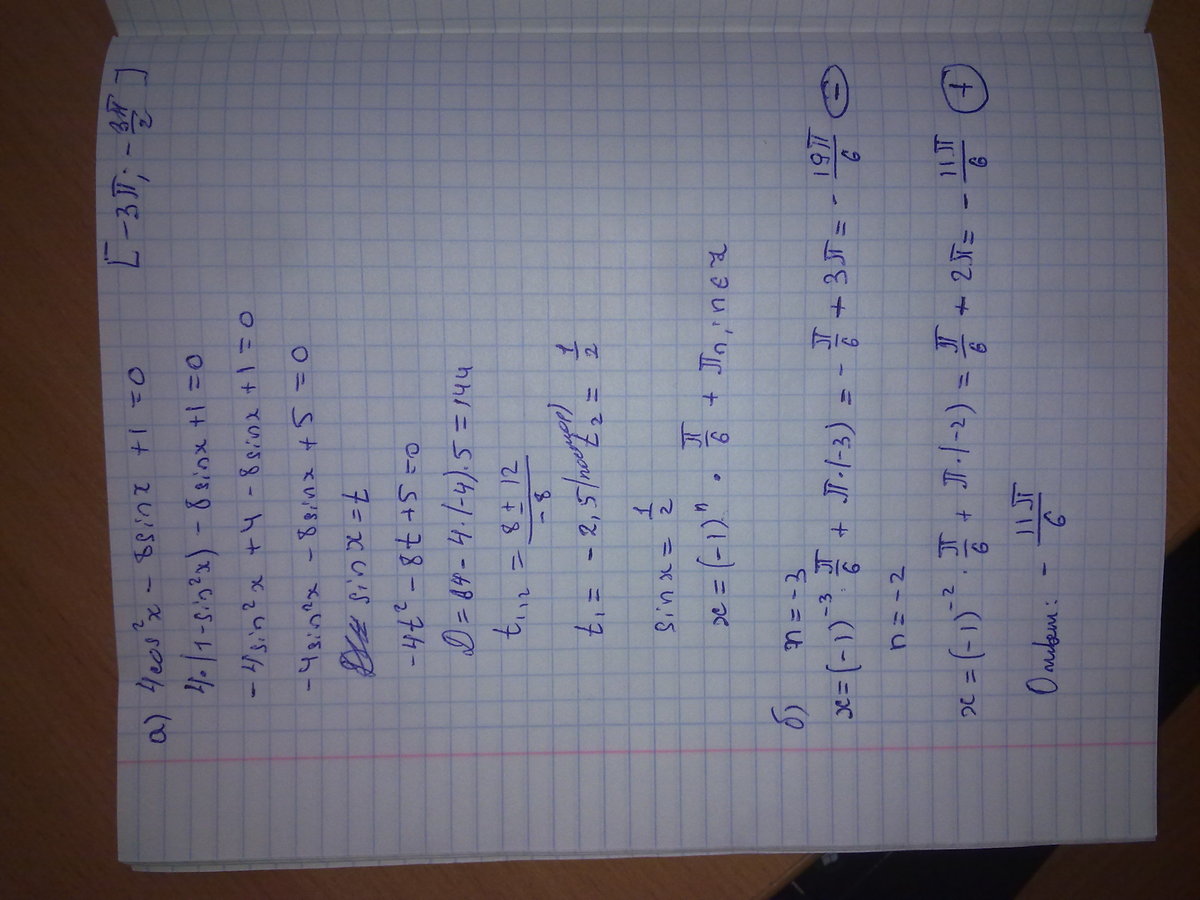 а) 4cos²x − 8sinx + 1 = 0 [−3π; −3π/2]
4·(1−sin²x) − 8sinx + 1 = 0
−4sin²x + 4 − 8sinx + 1 = 0
−4sin²x − 8sinx + 5 = 0
sinx = t
−4t² − 8t + 5 = 0
D = 84 − 4·(−4)·5 = 144
t₁,₂ = (8 ± 12)/−8
t₁ = −2,5 t₂ = 1/2
sinx = 1/2
x = (−1)ⁿ · π/6 + πn, n ∈ z
б) n = −3
x = (−1)⁻³ · π/6 + π·(−3) = −π/6 + 3π = −19π/6 −
n = −2
x = (−1)⁻² · π/6 + π·(−2) = π/6 + 2π = −11π/6 +
Ответ: −11π/6